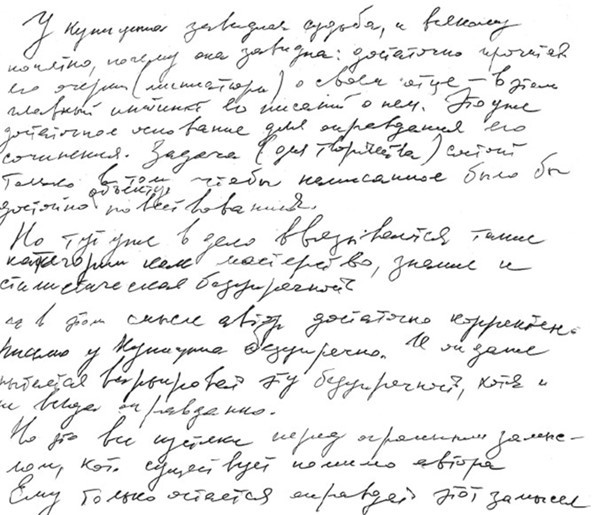 У Купицына завидная судьба, и всякому
понятно, почему она завидна: достаточно прочитать
его очерки (миниатюры) о своем отце — в этом
главный его писать о нем. Это уже
достаточное основание для оправдания его
сочинения. Задача (для творчества) состоит
только в том чтобы написанное было бы
достойно объекту повествования.
Но тут уже в дело ввязываются такие
категории как мастерство, знание и
стилистическая безупречность
и в этом смысле автор достаточно корректен.
письмо у безупречно. И он даже
пытается эту безупречность, хотя и
не всегда оправданно.
Но это все перед огромным замыс-
лом, кот. существует помимо автора
Ему только остается оправдать этот замысел